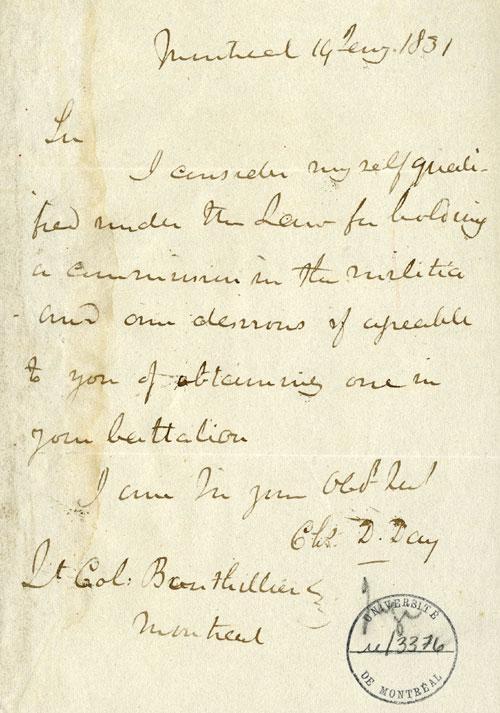 Montreal 19 Jany. 1831
Sir
I consider myself quali-
fied under the Law for holding
a commission in the militia
and am desirous if agreeable
to you of obtaining one in
your battalion
I am Sir your Obdt. Sevt
Chs. D. Day
Lt Col: Bouthillier
Montreal
UNIVERSITÉ
u/3376
DE MONTRÉAL